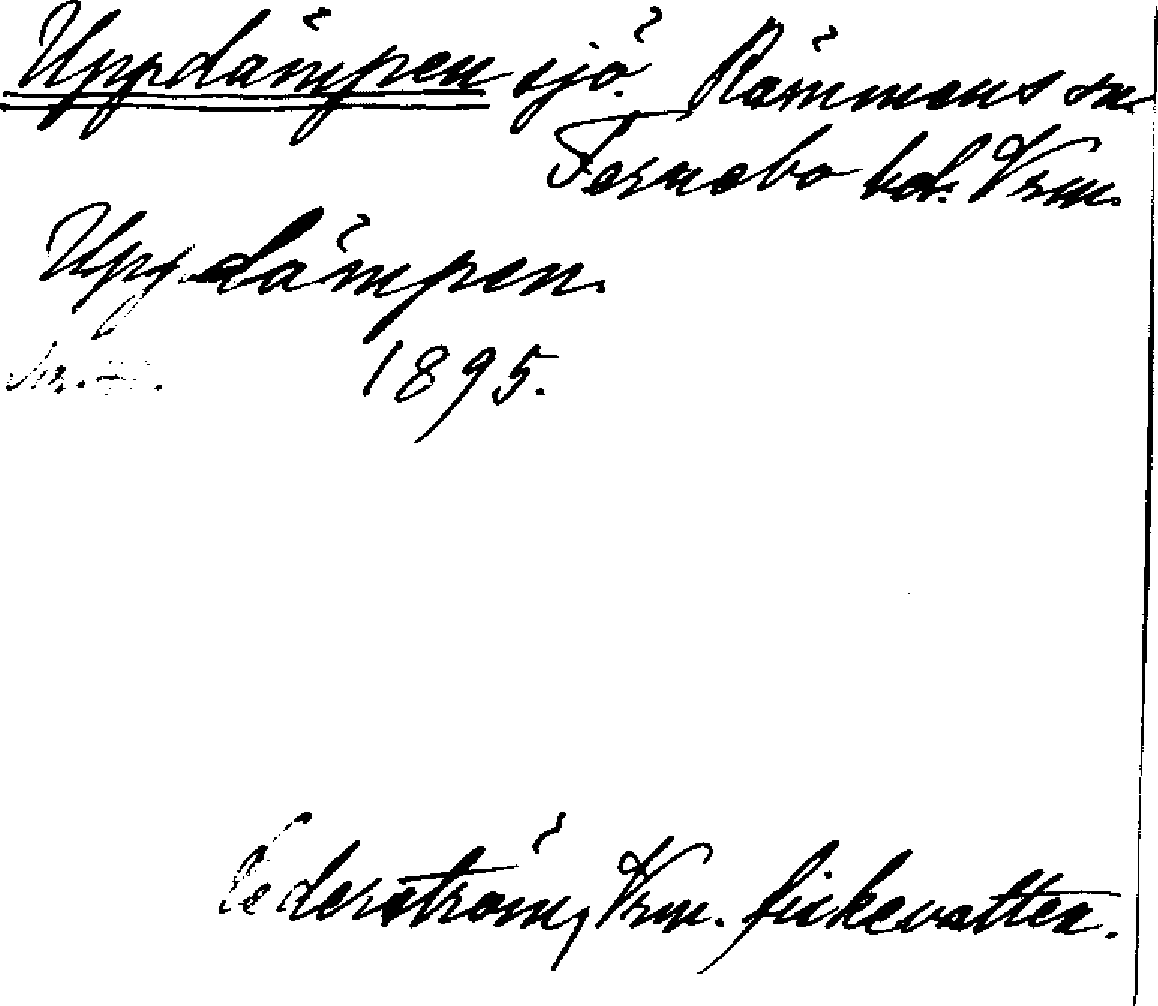 Uppdämpen sjö. Rämmens sn
Fernebo hd. Vrm.
Uppdämpen.
1895.
Cederström, Vrm. fiskevatten.